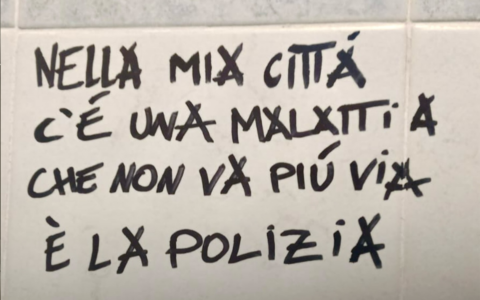 NELLA MIA CITTÁ
C'É UNA MALATTiA
CHE NON VA PIÚ ViA
È LA POLIZiA